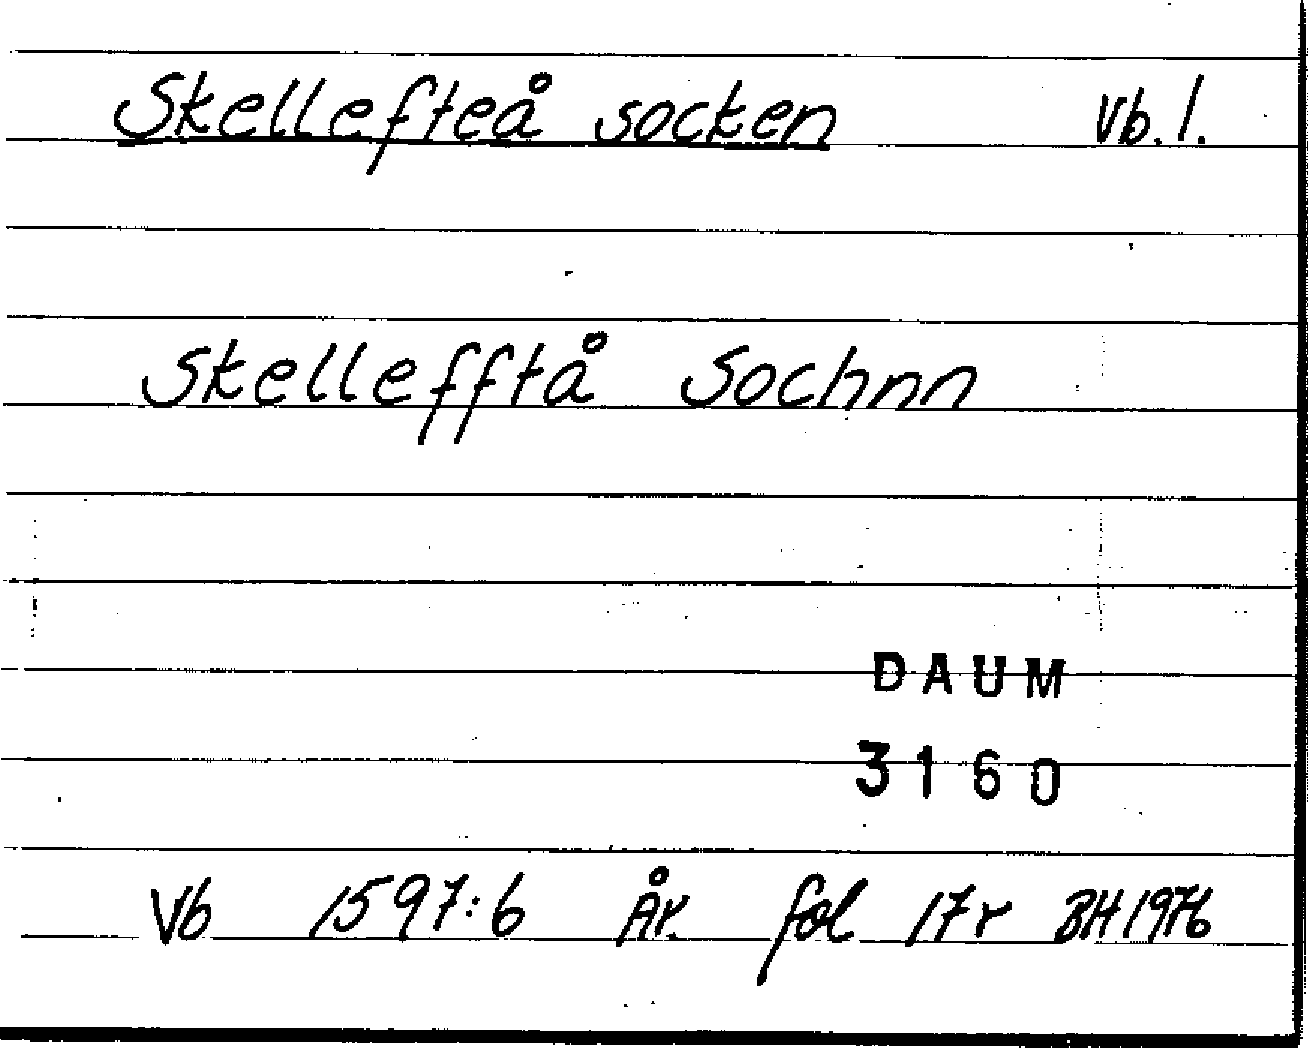 Skellefteå socken Vb. l.
Skellefftå Sochnn
DAUM
3160
Vb 1597:6 År. fol 17r BH 1976